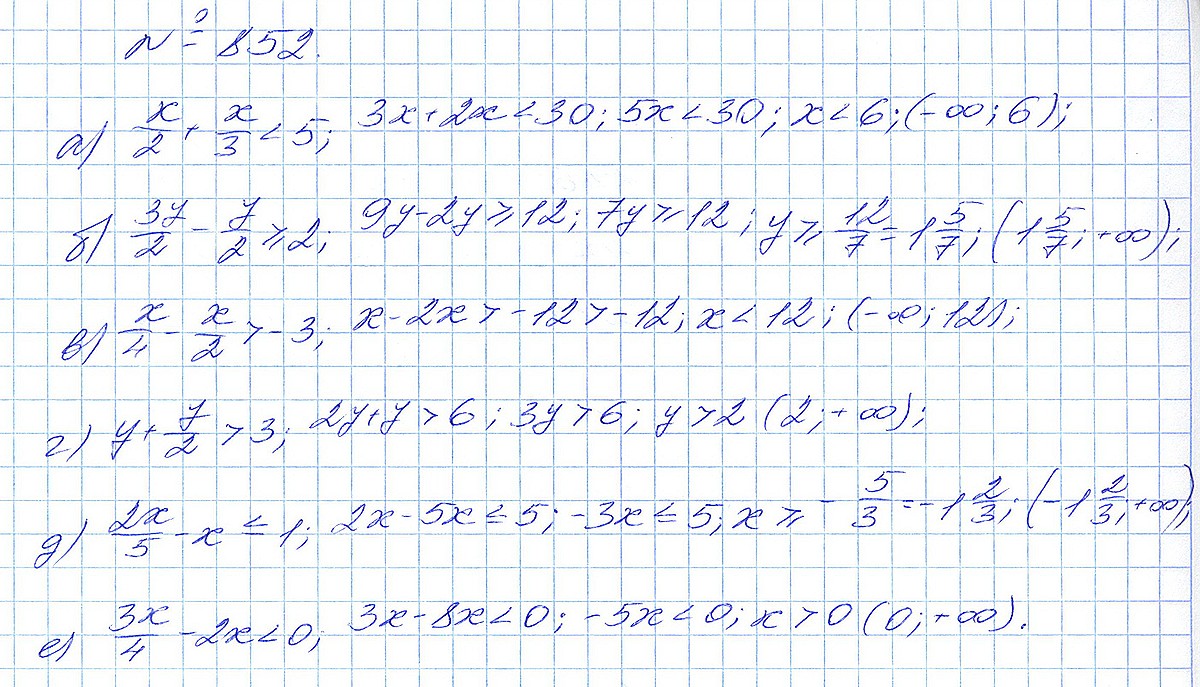 № 852.
а) x/2 + x/3 < 5; 3x+2x<30; 5x<30; x<6; (-∞; 6);
б) 3y/2 - y/2 ≥ 2; 9y-2y≥12; 7y≥12; y≥ 12/7 = 1 5/7; (1 5/7; +∞);
в) x/4 - x/2 > -3; x-2x>-12>-12; x<12; (-∞; 12);
г) y + y/2 > 3; 2y+y>6; 3y>6; y>2 (2; +∞);
д) 2x/5 - x ≤ 1; 2x-5x≤5; -3x≤5; x≥ -5/3 = -1 2/3; (-1 2/3; +∞);
е) 3x/4 - 2x<0; 3x-8x<0; -5x<0; x>0 (0; +∞).